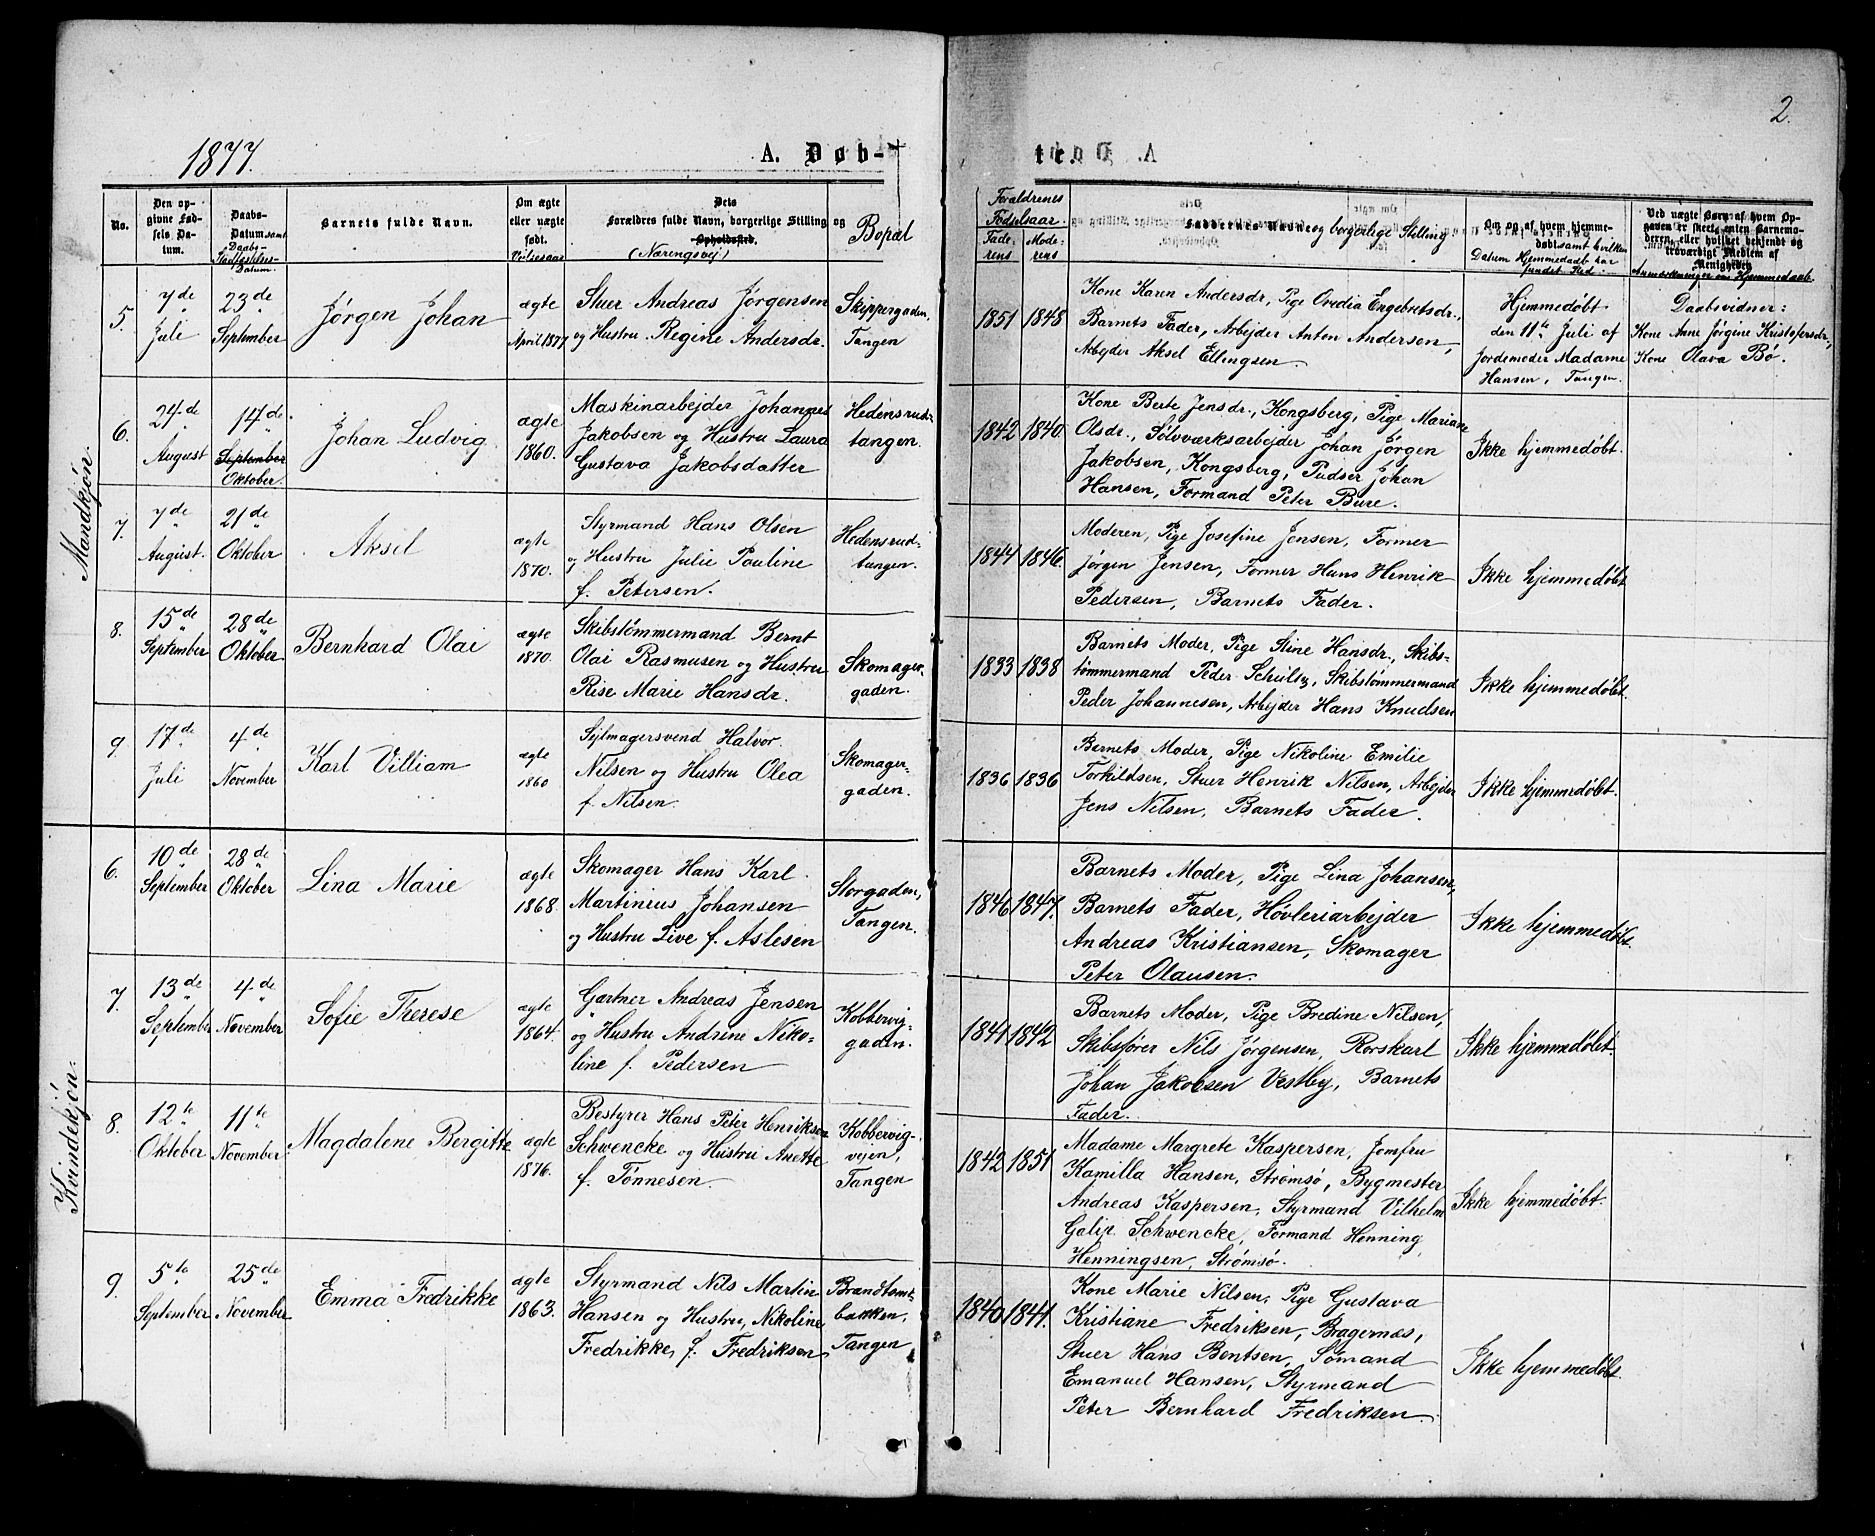 1877.
A. Døb-
te.
2.
No.
Den op-
givne Fød-
sels Da-
tum.
Daabs-
Datum samt
Daabs-
Stadfæstelses-
Datum.
Barnets fulde Navn.
Om ægte
eller uægte
født.
Vielsesaar
Dets
Forældres fulde Navn, borgerlige Stilling og
Opholdssted.
(Næringsvej)
Bopæl
Forældrenes
Fødselsaar
Fade-
rens
Mode-
rens
Faddernes Navne og borgerlige Stilling
Om og af hvem hjemme-
døbt samt hvilken
Datum Hjemmedaab har
fundet Sted.
Ved uægte Børn af hvem Op-
gaven er skeet, enten Barnemo-
deren, eller hvilket bekjendt og
troværdigt Medlem af
Menigheden
Anmærkninger om Hjemmedaab.
Mandkjøn.
5.
7de
Juli
23de
September
Jørgen Johan
ægte
April 1877
Stuer Andreas Jørgensen
og Hustru Regine Andersdr.
Skippergaden,
Tangen
1851
1848
Kone Karen Andersdr., Pige Ovedia Engebretsdr.,
Barnets Fader, Arbejder Anton Andersen,
Arbejder Aksel Ellingsen.
Hjemmedøbt
den 11te Juli af
Jordemoder Madame
Hansen, Tangen.
Daabsvidner:
Kone Anne Jørgine Kristofersdr.,
Kone Olava Bø.
6.
24de
August
14de
September
Oktober.
Johan Ludvig
ægte
1860.
Maskinarbejder Johannes
Jakobsen og Hustru Laura
Gustava Jakobsdatter
Hedensrud-
tangen.
1842
1840.
Kone Berte Jensdr., Kongsberg, Pige Mariane
Olsdr., Sølvværksarbejder Johan Jørgen
Jakobsen, Kongsberg, Pudser Johan
Hansen, Formand Peter Bure.
Ikke hjemmedøbt.
7.
7de
August.
21de
Oktober
Aksel
ægte
1870.
Styrmand Hans Olsen
og Hustru Julie Pauline
f. Petersen.
Hedensrud-
tangen.
1844
1846.
Moderen, Pige Josefine Jensen, Former
Jørgen Jensen, Former Hans Henrik
Pedersen, Barnets Fader.
Ikke hjemmedøbt.
8.
15de
September
28de
Oktober
Bernhard Olai
ægte
1870.
Skibstømmermand Bernt
Olai Rasmusen og Hustru
Rise Marie Hansdr.
Skomager-
gaden.
1833
1838
Barnets Moder, Pige Stine Hansdr., Skibs-
tømmermand Peder Schultz, Skibstømmermand
Peder Johannesen, Arbejder Hans Knudsen
Ikke hjemmedøbt.
9.
17de
Juli
4de
November
Karl Villiam
ægte
1860
Sejlmagersvend Halvor
Nilsen og Hustru Olea
f. Nilsen.
Skomager-
gaden.
1836
1836
Barnets Moder, Pige Nikoline Emilie
Torkildsen, Stuer Henrik Nilsen, Arbejder
Jens Nilsen, Barnets Fader.
Ikke hjemmedøbt.
Kvindekjøn.
6.
10de
September
28de
Oktober
Lina Marie
ægte
1868.
Skomager Hans Karl
Martinius Johansen
og Hustru Live f. Aslesen
Storgaden,
Tangen.
1846
1847.
Barnets Moder, Pige Lina Johansen,
Barnets Fader, Høvleriarbejder
Andreas Kristiansen, Skomager
Peter Olausen.
Ikke hjemmedøbt.
7.
13de
September
4de
November
Sofie Therese
ægte
1864.
Gartner Andreas Jensen
og Hustru Andrine Niko-
line f. Pedersen
Kobbervig-
gaden.
1841
1842
Barnets Moder, Pige Bredine Nilsen,
Skibsfører Nils Jørgensen, Rorskarl
Johan Jakobsen Vestby, Barnets
Fader.
Ikke hjemmedøbt.
8.
12te
Oktober
11te
November.
Magdalene Bergitte
ægte
1876.
Bestyrer Hans Peter Henriksen
Schwencke og Hustru Anette
f. Tønnesen.
Kobbervig-
vejen,
Tangen
1842
1851
Madame Margrete Kaspersen, Jomfru
Kamilla Hansen, Strømsø, Bygmester
Andreas Kaspersen, Styrmand Vilhelm
Schwencke, Formand Henning
Henningsen, Strømsø.
Ikke hjemmedøbt.
9.
5te
September
25de
November
Emma Fredrikke
ægte
1863.
Styrmand Nils Martin
Hansen og Hustru, Nikoline
Fredrikke, f. Fredriksen,
Brandtomt-
bakken,
Tangen
1840
1841.
Kone Marie Nilsen, Pige Gustava
Kristiane Fredriksen, Bragernæs,
Stuer Hans Bentsen, Sømand
Emanuel Hansen, Styrmand
Peter Bernhard Fredriksen.
Ikke hjemmedøbt.